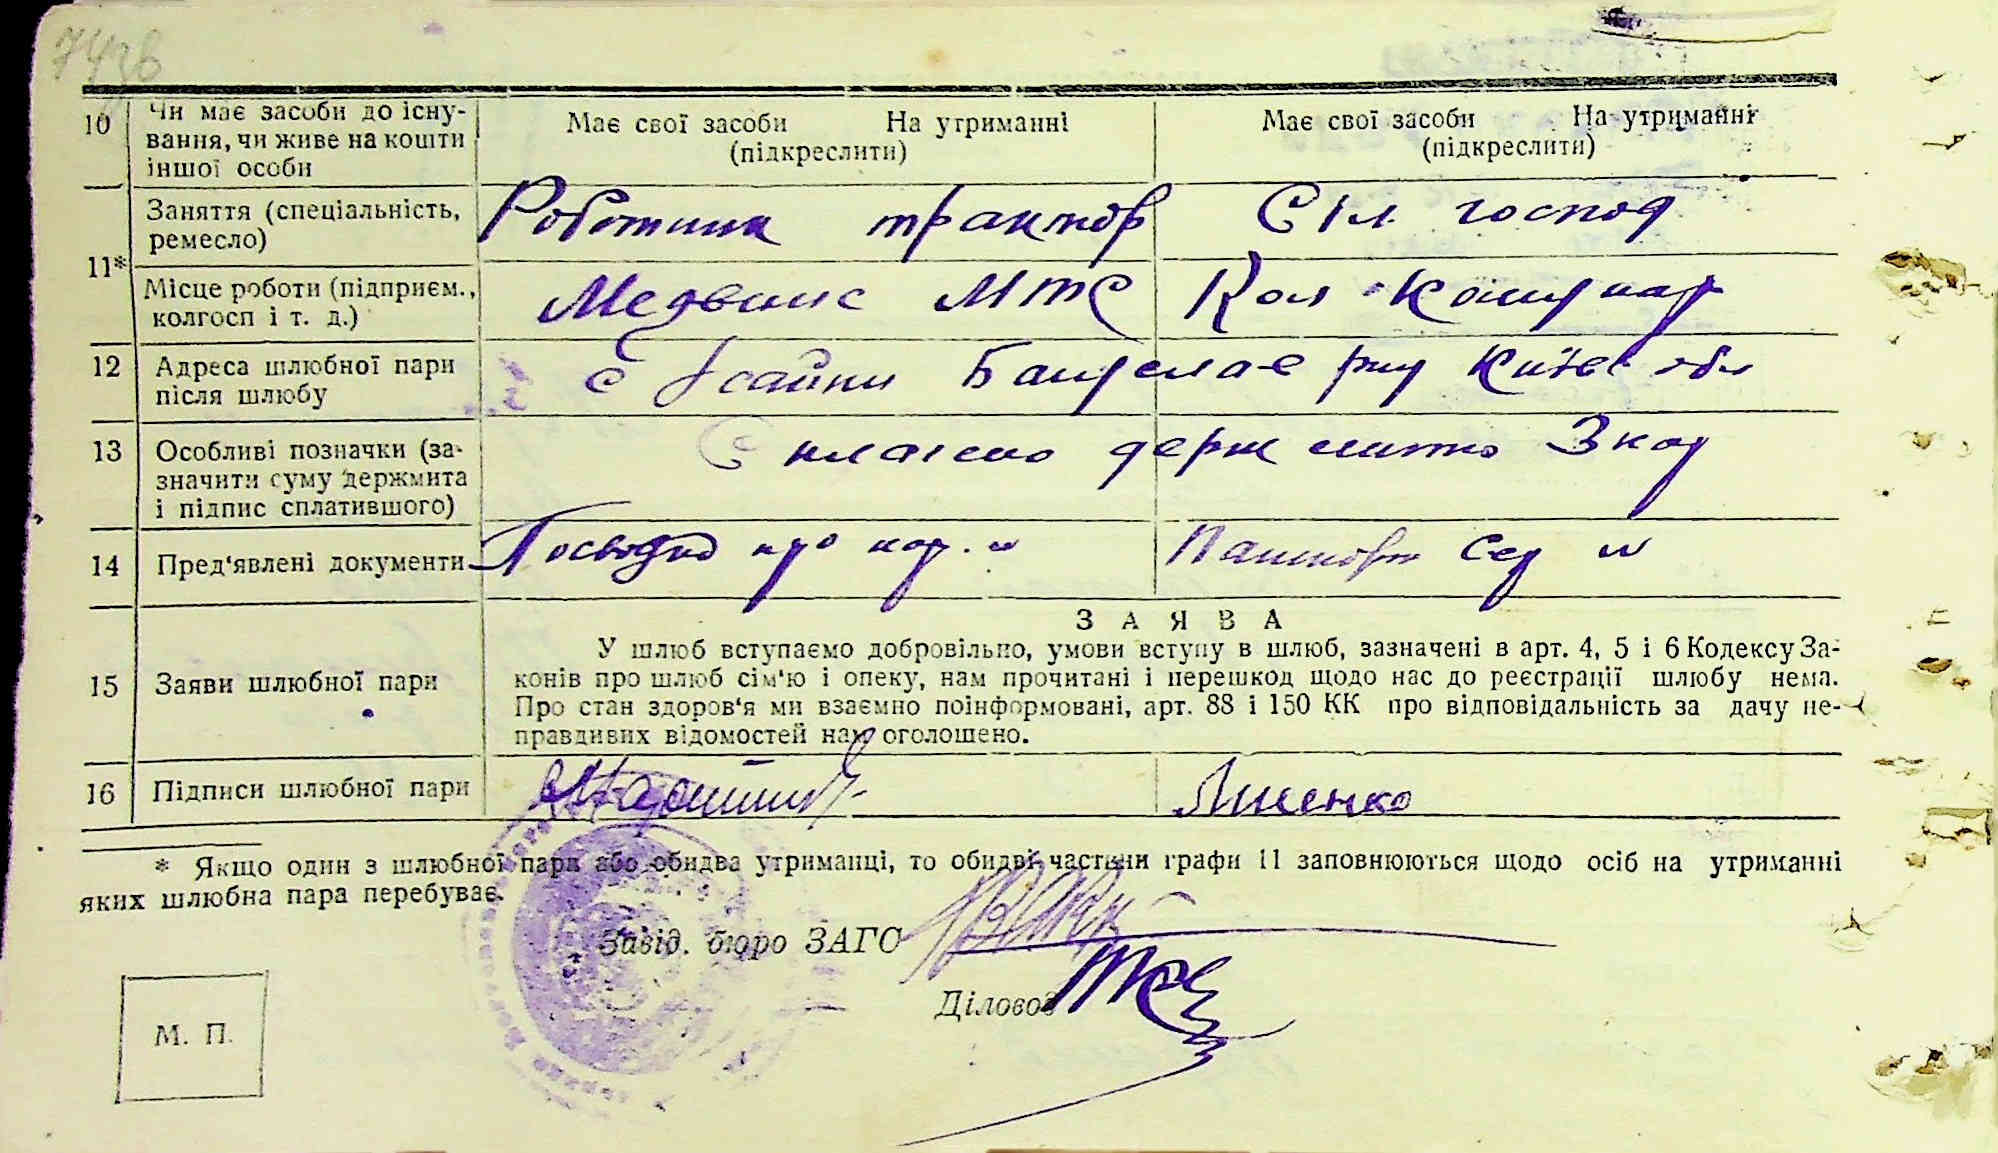 74зв
10 Чи має засоби до існу-
вання, чи живе на кошти
іншої особи
Має свої засоби На утриманні
(підкреслити)
Має свої засоби На утриманні
(підкреслити)
11*
Заняття (спеціальність,
ремесло)
Роботник трактор
Сіл господ
Місце роботи (підприєм.,
колгосп і т. д.)
Медвинс МТС
Кол Комунар
12 Адреса шлюбної пари
після шлюбу
с Ісайки Богуслає рну Київс обл
13 Особливі позначки (за-
значити суму держмита
і підпис сплатившого)
Сплаено держ мито 3 кар
14 Пред'явлені документи
Посвідка про нар.
Пашпорт Сер
15 Заяви шлюбної пари
ЗАЯВА
У шлюб вступаємо добровільно, умови вступу в шлюб, зазначені в арт. 4, 5 і 6 Кодексу За-
конів про шлюб сім'ю і опеку, нам прочитані і перешкод щодо нас до реєстрації шлюбу нема.
Про стан здоров'я ми взаємно поінформовані, арт. 88 і 150 КК про відповідальність за дачу не-
правдивих відомостей нам оголошено.
16 Підписи шлюбної пари
Лисенко
* Якщо один з шлюбної пари або обидва утриманці, то обидві частини графи 11 заповнюються щодо осіб на утриманні
яких шлюбна пара перебуває.
Завід. бюро ЗАГС
Діловод
М. П.